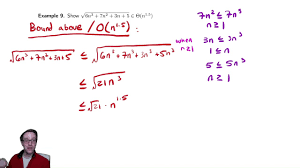 Example 9. Show √(6n³ + 7n² + 3n + 5) ∈ Θ(n^1.5)
Bound above / O(n^1.5)
√(6n³+7n²+3n+5) ≤ √(6n³+7n³+3n³+5n³)
≤ √(21n³)
≤ √21 · n^1.5
when n≥1
7n² ≤ 7n³
n ≥ 1
3n ≤ 3n³
1 ≤ n
5 ≤ 5n³
n ≥ 1